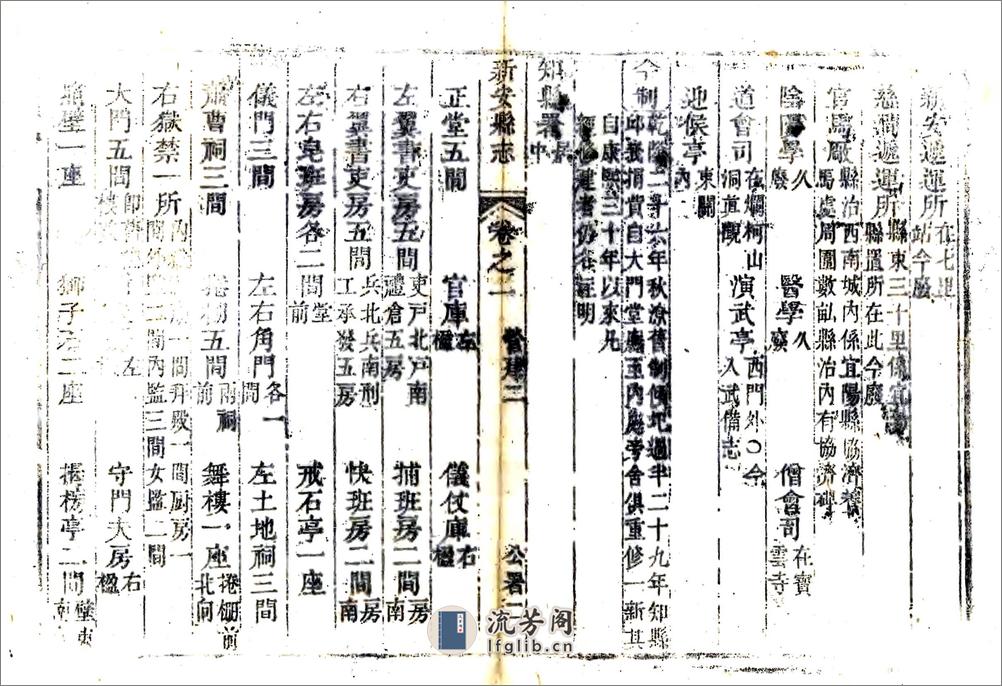 新安遞運所在七里站今廢
慈澗遞運所縣東三十里係宜縣置所在此今廢
官馬廠縣治西南城內係宜陽縣協濟養馬處周圍數畝縣治內有協濟碑
陰陽學久廢 醫學久廢 僧會司在寶雲寺
道會司在爛柯山洞真觀 演武亭西門外○今入武備志
迎候亭東關內
今制乾隆二十六年秋潦舊制傾圮過半二十九年知縣邱峩捐貲自大門堂廡至內庭旁舍俱重修一新其自康熙三十年以來凡經修建者仍各註明
知縣署
新安縣志 卷之一 營建二 公署二
正堂五間 官庫左楹 儀仗庫右楹
左翼書吏房五間吏戶北戶南禮倉五房 捕班房二間房南
右翼書吏房五間兵北兵南刑工承發五房 快班房二間房南
左右皂班房各二間堂前 戒石亭一座
儀門三間 左右角門各一間 左土地祠三間
蕭曹祠三間 捲棚五間兩祠前 舞樓一座捲棚前北向
右獄禁一所 一間拜殿一間厨房一間 內監三間女監二間
大門五間 左 守門夫房右楹
照壁一座 獅子石二座 榜亭二間
流芳阁
lfglib.cn